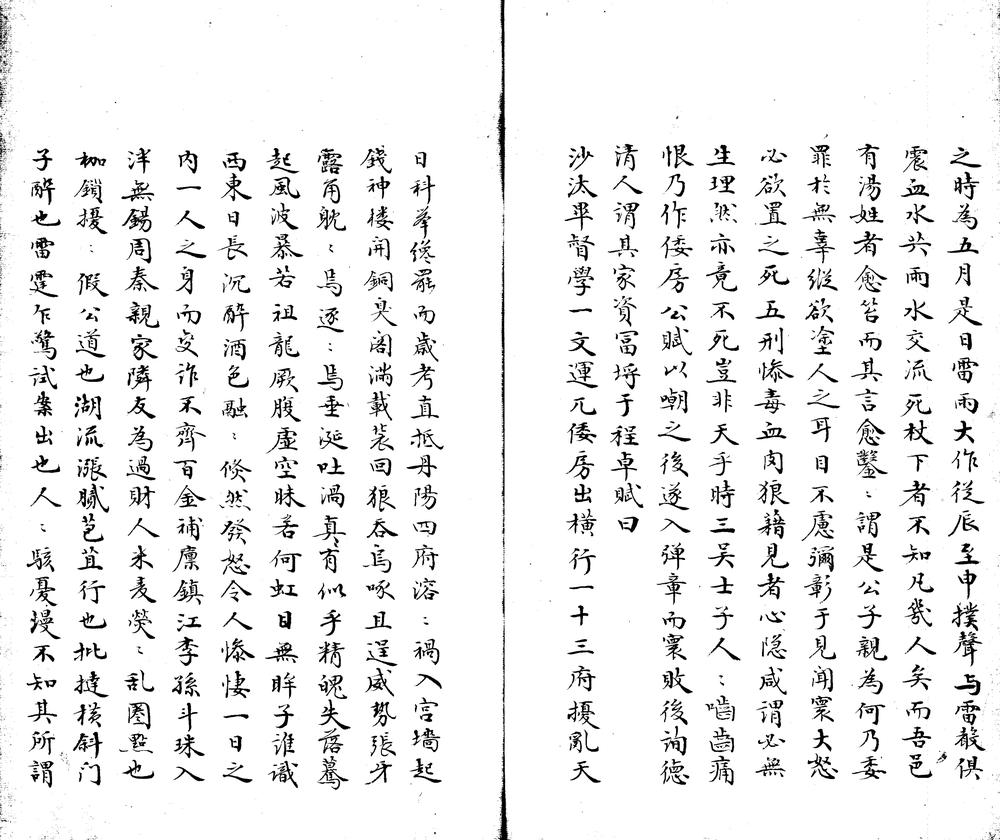 之時為五月是日雷雨大作從辰至申撲聲与雷聲俱
震血水共雨水交流死杖下者不知凡幾人矣而吾邑
有湯姓者愈笞而其言愈鑿〻謂是公子親為何乃委
罪於無辜縱欲塗人之耳目不慮彌彰于見聞寰大怒
必欲置之死五刑慘毒血肉狼藉見者心隐咸謂必無
生理然亦竟不死豈非天乎時三吴士子人〻嚙齒痛
恨乃作倭房公賦以嘲之後遂入弹章而寰敗後詢德
清人謂其家資冨埒于程卓賦曰
沙汰畢督學一文運兀倭房出横行一十三府擾亂天
日科举纔罷而歳考直抵丹陽四府溶〻禍入宫墻起
錢神楼開銅臭阁满載装回狼吞烏啄且逞威勢張牙
露角躭〻焉逐〻焉垂涎吐涡真〻有似乎精魄失落驀
起風波暴若祖龍厥腹虚空昧若何虹日無眸子谁識
西東日長沉酔酒色融〻倐然發怒令人惨悽一日之
内一人之身而变诈不齊百金補廪鎮江李孫斗珠入
泮無錫周秦親家隣友為過財人米麦熒〻乱圏點也
枷鎖擾〻假公道也湖流漲膩苞苴行也批撻横斜门
子酔也雷霆乍驚試案出也人〻駭憂漫不知其所謂